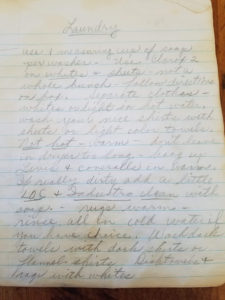 Laundry
use 1 measuring cup of soap
per washer - Use
on whites & sheets - not a
whole bunch - follow directions
on box. Separate clothes -
whites only in hot water.
wash your nice shirts with
shorts or light color towels.
Not hot - warm - don't leave
in dryer too long - hang up
Levis & coveralls in warm.
If really dirty add a little
LOC & clean with
soap - rugs warm -
rinse all in cold water if
you have choice. Wash dark
towels with dark shirts or
flannel shirts. Dishtowels &
rags with whites